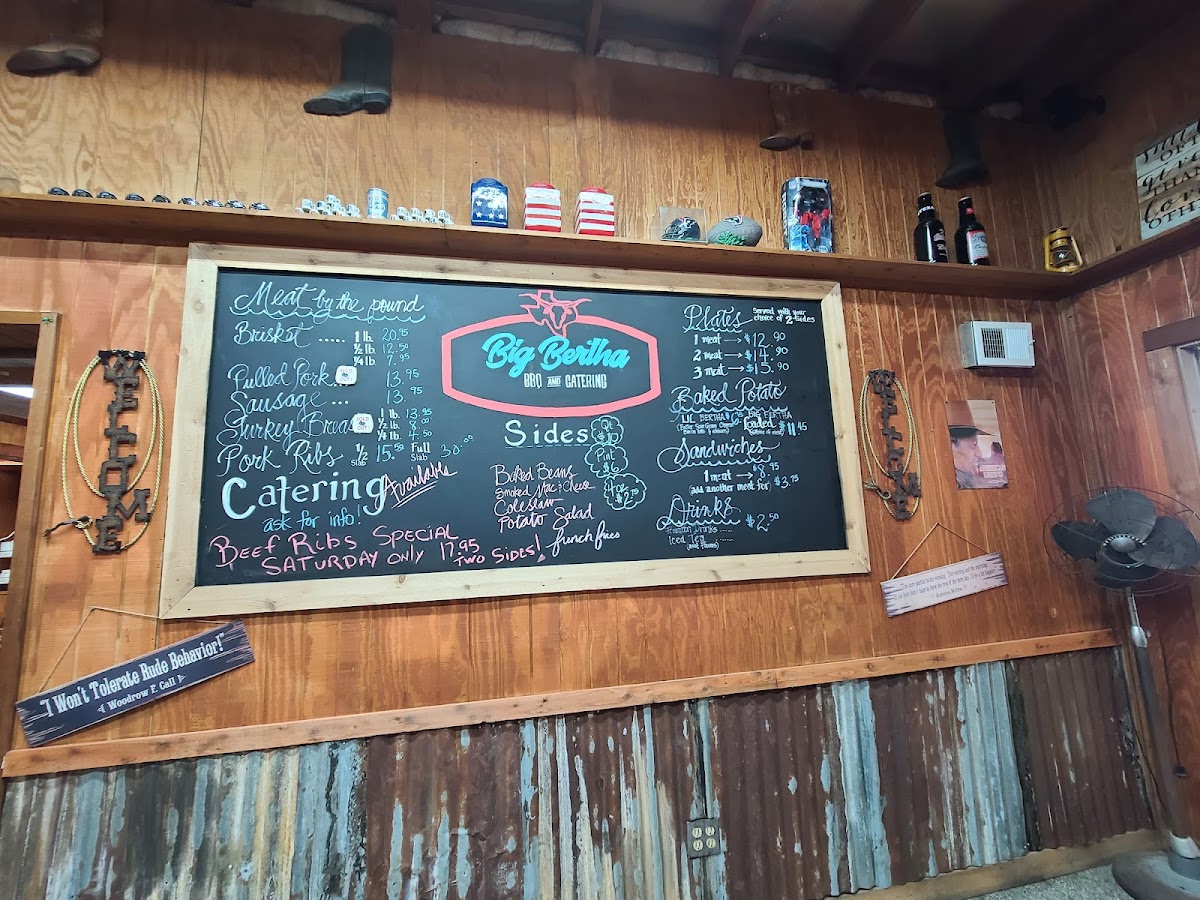 Meat by the pound
Brisket ..... 1 lb. 20.95
½ lb. 12.50
¼ lb. 7.95
Pulled Pork... 13.95
Sausage ... 13.95
Turkey Breast 1 lb. 13.95
½ lb. 8.95
¼ lb. 4.50
SOLD OUT
Pork Ribs ½ Slab 15.50 Full Slab 30.00
Catering Available
ask for info!
Beef Ribs Special
Saturday only 17.95
Two Sides!
Big Bertha
BBQ AND CATERING
Sides
Qt $10
Pint $6
4oz $2.75
Baked Beans
Smoked Mac & Cheese
Coleslaw
Potato Salad
french fries
Plates served with your choice of 2-Sides
1 meat → $12.90
2 meat → $14.90
3 meat → $15.90
Baked Potato
LIL BERTHA
BIG BERTHA
loaded $11.45
Sandwiches
1 meat → $8.95
(add another meat for) $3.75
Drinks
Fountain Drinks ....
Iced Tea
$2.50
WELCOME
WELCOME
"I Won't Tolerate Rude Behavior!"
Woodrow F. Call